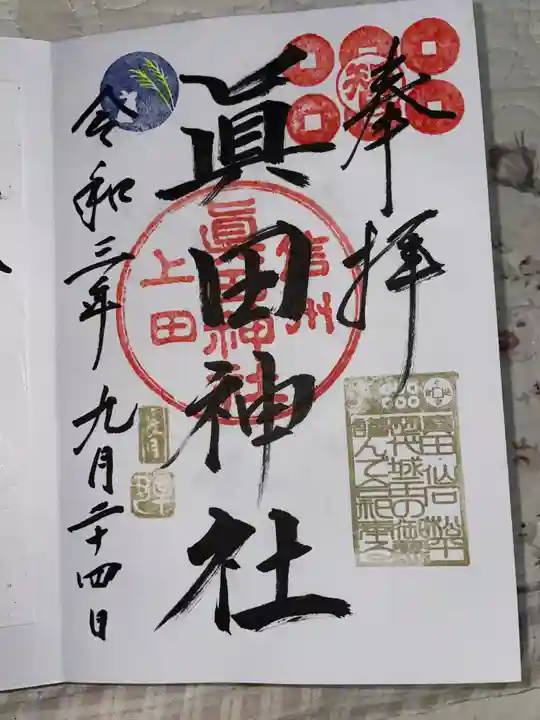 奉拝
信州
眞田神社
上田
眞田神社
令和三年九月二十四日